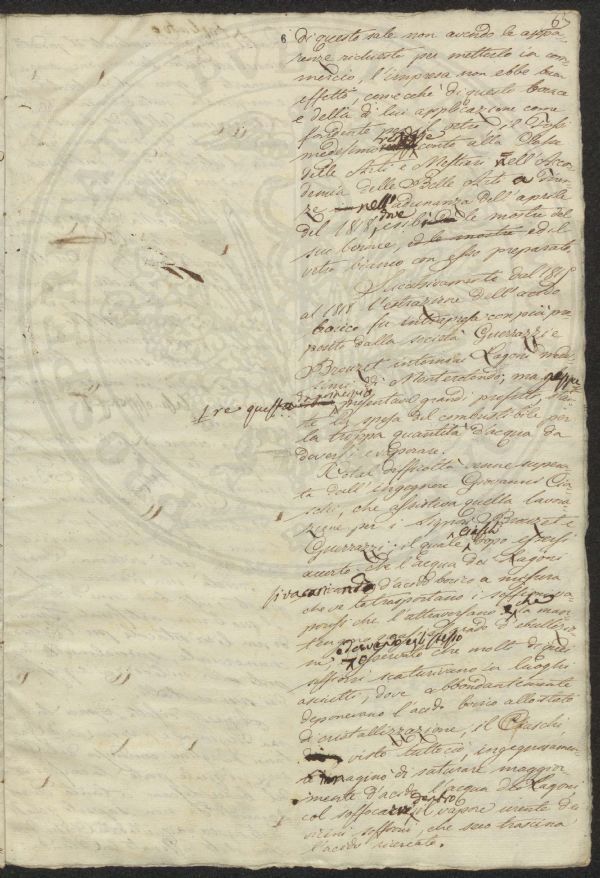 63
6
di questo sale non avendo le appa-
renze richieste per metterlo in com-
mercio, l'impresa non ebbe buon
effetto, comecchè di questo borace
e della di lui applicazione come
fondente il
medesimo conto alla Classe
delle Arti e Mestieri nell'Acca-
demia delle Belle Arti a Firen-
ze nell'adunanza dell'aprile
del 1818, ove esibì le mostre del
suo borace, ed il
vetro bianco con esso preparato.
Successivamente dal 1818
al 1818 l'estrazione dell'acido
boracico fu intrapresa con più pro-
posito dalla società Guerrazzi e
Brouzet intorno ai Lagoni
di Monterotondo; ma neppu-
re questa da principio presentava grandi profitti,
te la spesa del combustibile per
la troppa quantità d'acqua da
doversi evaporare.
Cotal difficoltà venne supera-
ta dall'ingegnere Giovanni Ciu-
schi, che assisteva quella lavora-
zione per i Signori Brouzet e
Guerrazzi; il quale Ciaschi dopo essersi
accorto che l'acqua dei Lagoni
si va caricando d'acido borico a misura
che ve lo trasportano i soffioni va-
porosi che l'attraversano e che la man-
tengono grado d'ebullizio-
ne, ed osservando egli stesso che molti di questi
soffioni scaturivano in luoghi
asciutti, dove abbondantemente
deponevano l'acido borico allo stato
di cristallizzazione, il Ciaschi
visto tuttociò, ingegnosamen-
te immaginò di saturare maggior-
mente d'acido l'acqua dei Lagoni
col soffocarvi dentro il vapore urente dei
vicini soffioni, che seco trascina
l'acido ricercato.